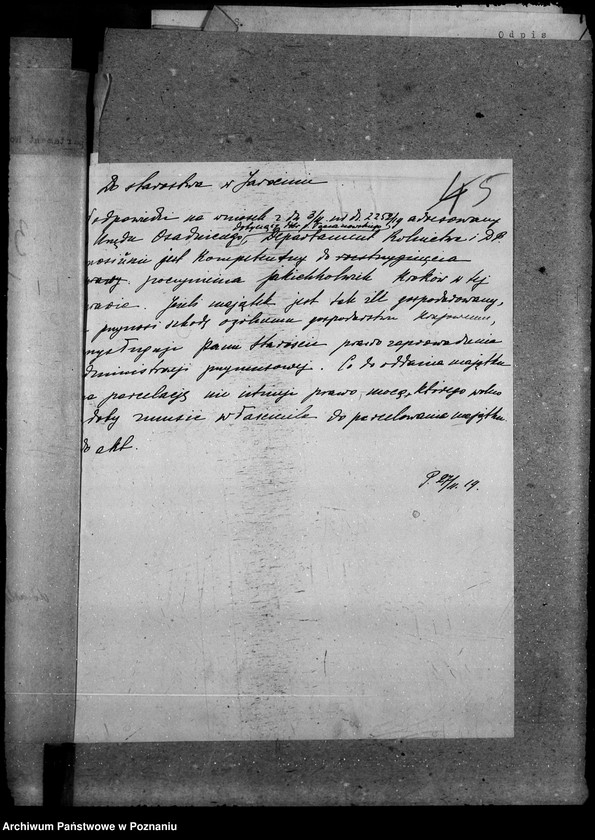 Odpis
45
Do starostwa w Jarocinie
odpowiedzi na wniosek z dn. 3/4 nr dz. 2252/19 adresowany
dotyczący
Urzędu Osadniczego, Departament Rolnictwa i D.P.
jest kompetentny do rozstrzygnięcia
poczynienia jakichkolwiek kroków w tej
prawie. Jeśli majątek jest tak źle gospodarowany,
przynosi szkodę ogólnemu gospodarstwu krajowemu,
przysługuje Panu Staroście prawo zaprowadzenia
administracji przymusowej. Co do oddania majątku
na parcelację nie istnieje prawo, mocą, którego wolno
było zmusić właściciela do parcelowania majątku.
do akt.
P. 27/ 19.
Archiwum Państwowe w Poznaniu